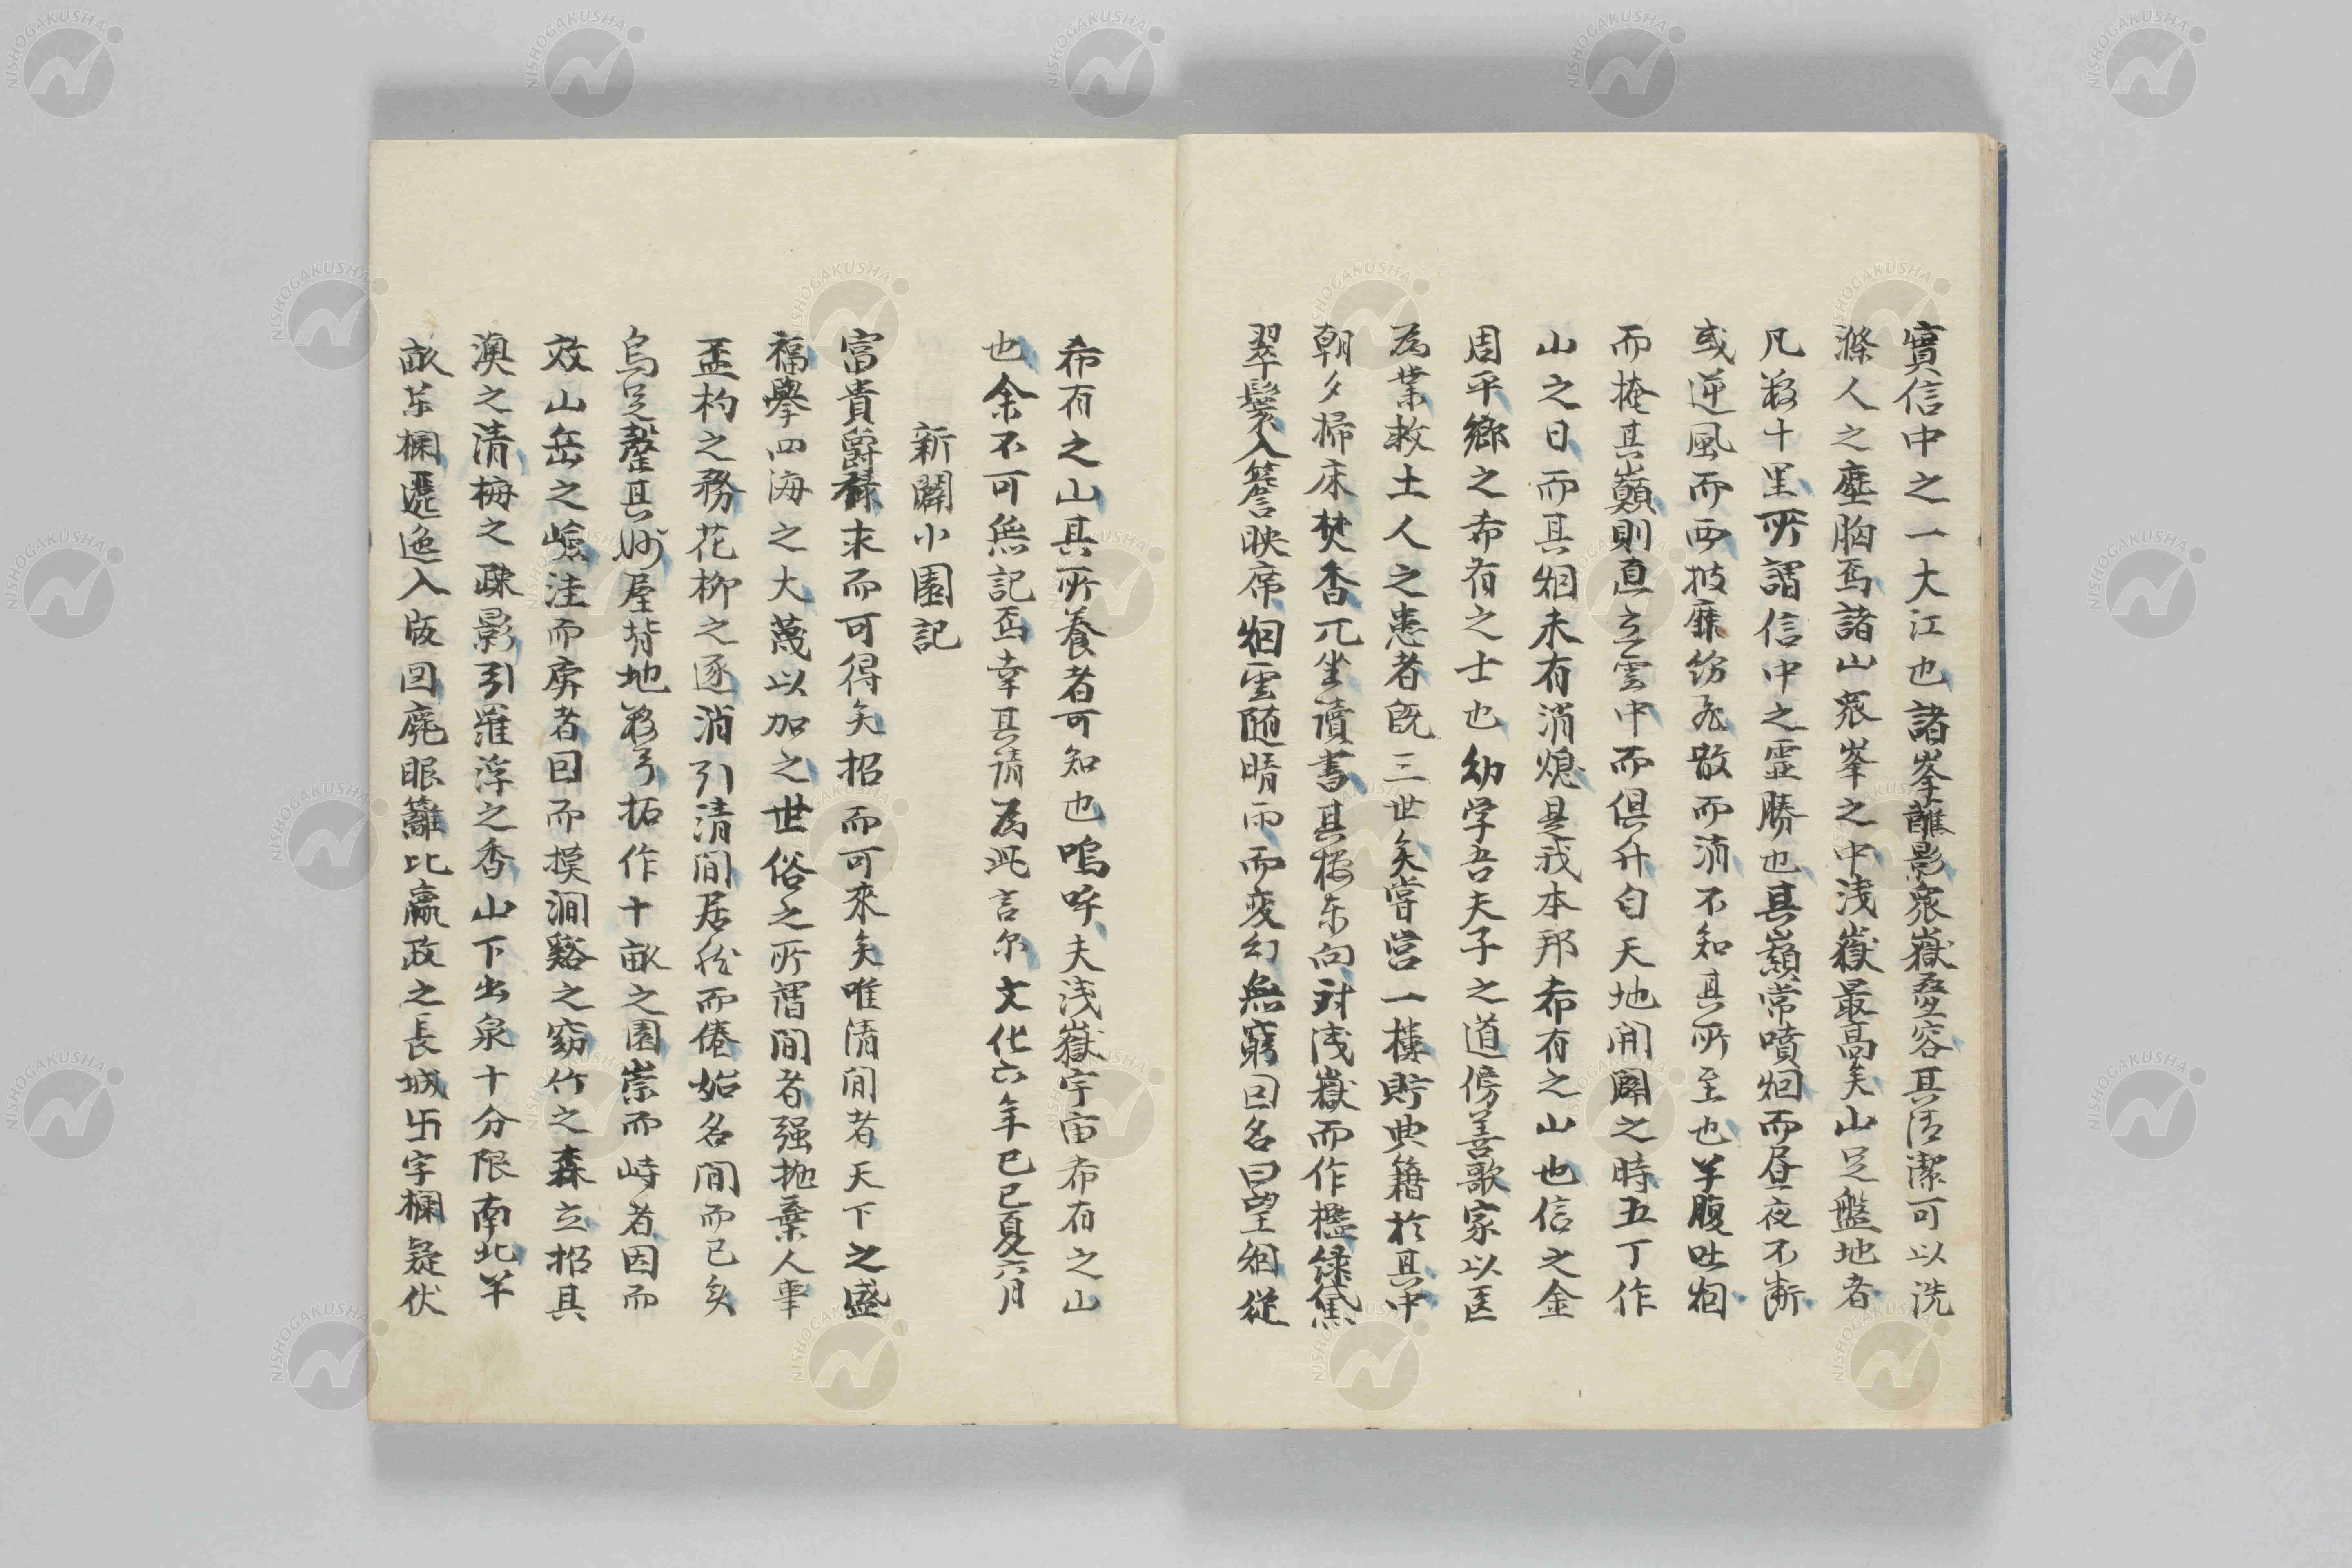 實信中之一大江也諸峯蘸影衆嶽委容其清潔可以洗
滌人之塵胸焉諸山衆峯之中浅嶽最高矣山足盤地者
凡數十里所謂信中之靈勝也其巓常噴烟而昼夜不断
或逆風而西披靡紛飛散而消不知其所至也半腹吐烟
而掩其巓則直立雲中而倶升自天地開闢之時五丁作
山之日而其烟未有消熄是我本邦希有之山也信之金
周平郷之希有之士也幼学吾夫子之道傍善歌家以医
為業救土人之患者既三世矣嘗営一樓貯典籍於其中
朝夕掃床焚香兀坐讀書其樓东向対浅嶽而作檻緑黛
翠鬟入簷映席烟雲随晴雨而変幻無窮因名曰望烟從
希有之山其所養者可知也嗚呼夫浅嶽宇宙希有之山
也余不可無記焉幸其請為此言尓文化六年己巳夏六月
新闢小園記
富貴爵禄求而可得矣招而可來矣唯清間者天下之盛
福擧四海之大蔑以加之世俗之所謂間者强抛棄人事
盃杓之務花柳之逐消引清間居然而倦始名間而已矣
烏足罄其妙屋背地数弓拓作十畝之園崇而峙者因而
效山岳之嶮洼而庨者因而摸澗谿之窈竹之森立招其
澳之清梅之疎影引羅浮之香山下出泉十分限南北半
畝苶欄遷迤入版回廃眼籬比嬴政之長城卐字欄疑伏